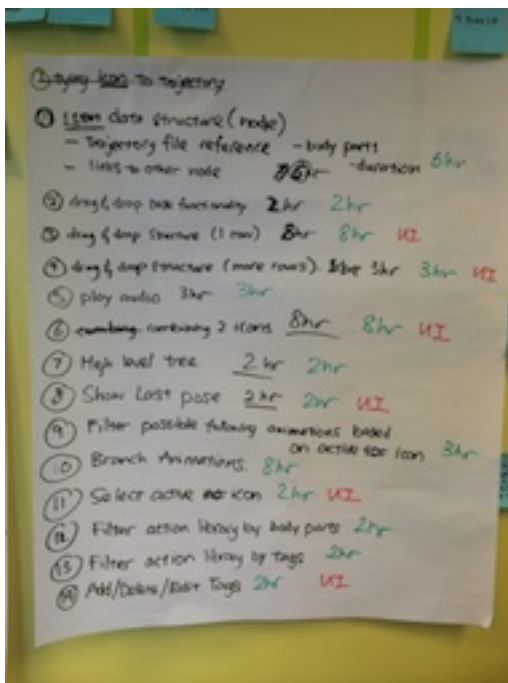 ① tying icon to trajectory
① icon data structure (node)
- trajectory file reference - body parts
- links to other node hr - duration 6hr
② drag & drop base functionality 2hr 2hr
③ drag & drop structure (1 row) 8hr 8hr UI
④ drag & drop structure (more rows). 3hr 3hr UI
⑤ play audio 3hr 3hr
⑥ combining 2 icons 8hr 8hr UI
⑦ High level tree 2hr 2hr
⑧ Show Last pose 2hr 2hr UI
⑨ Filter possible following animations based
on active icon 3hr
⑩ Branch Animations. 8hr
⑪ Select active icon 2hr UI
⑫ Filter action library by body parts 2hr
⑬ Filter action library by Tags 2hr
⑭ Add/Delete/Edit Tags 2hr UI